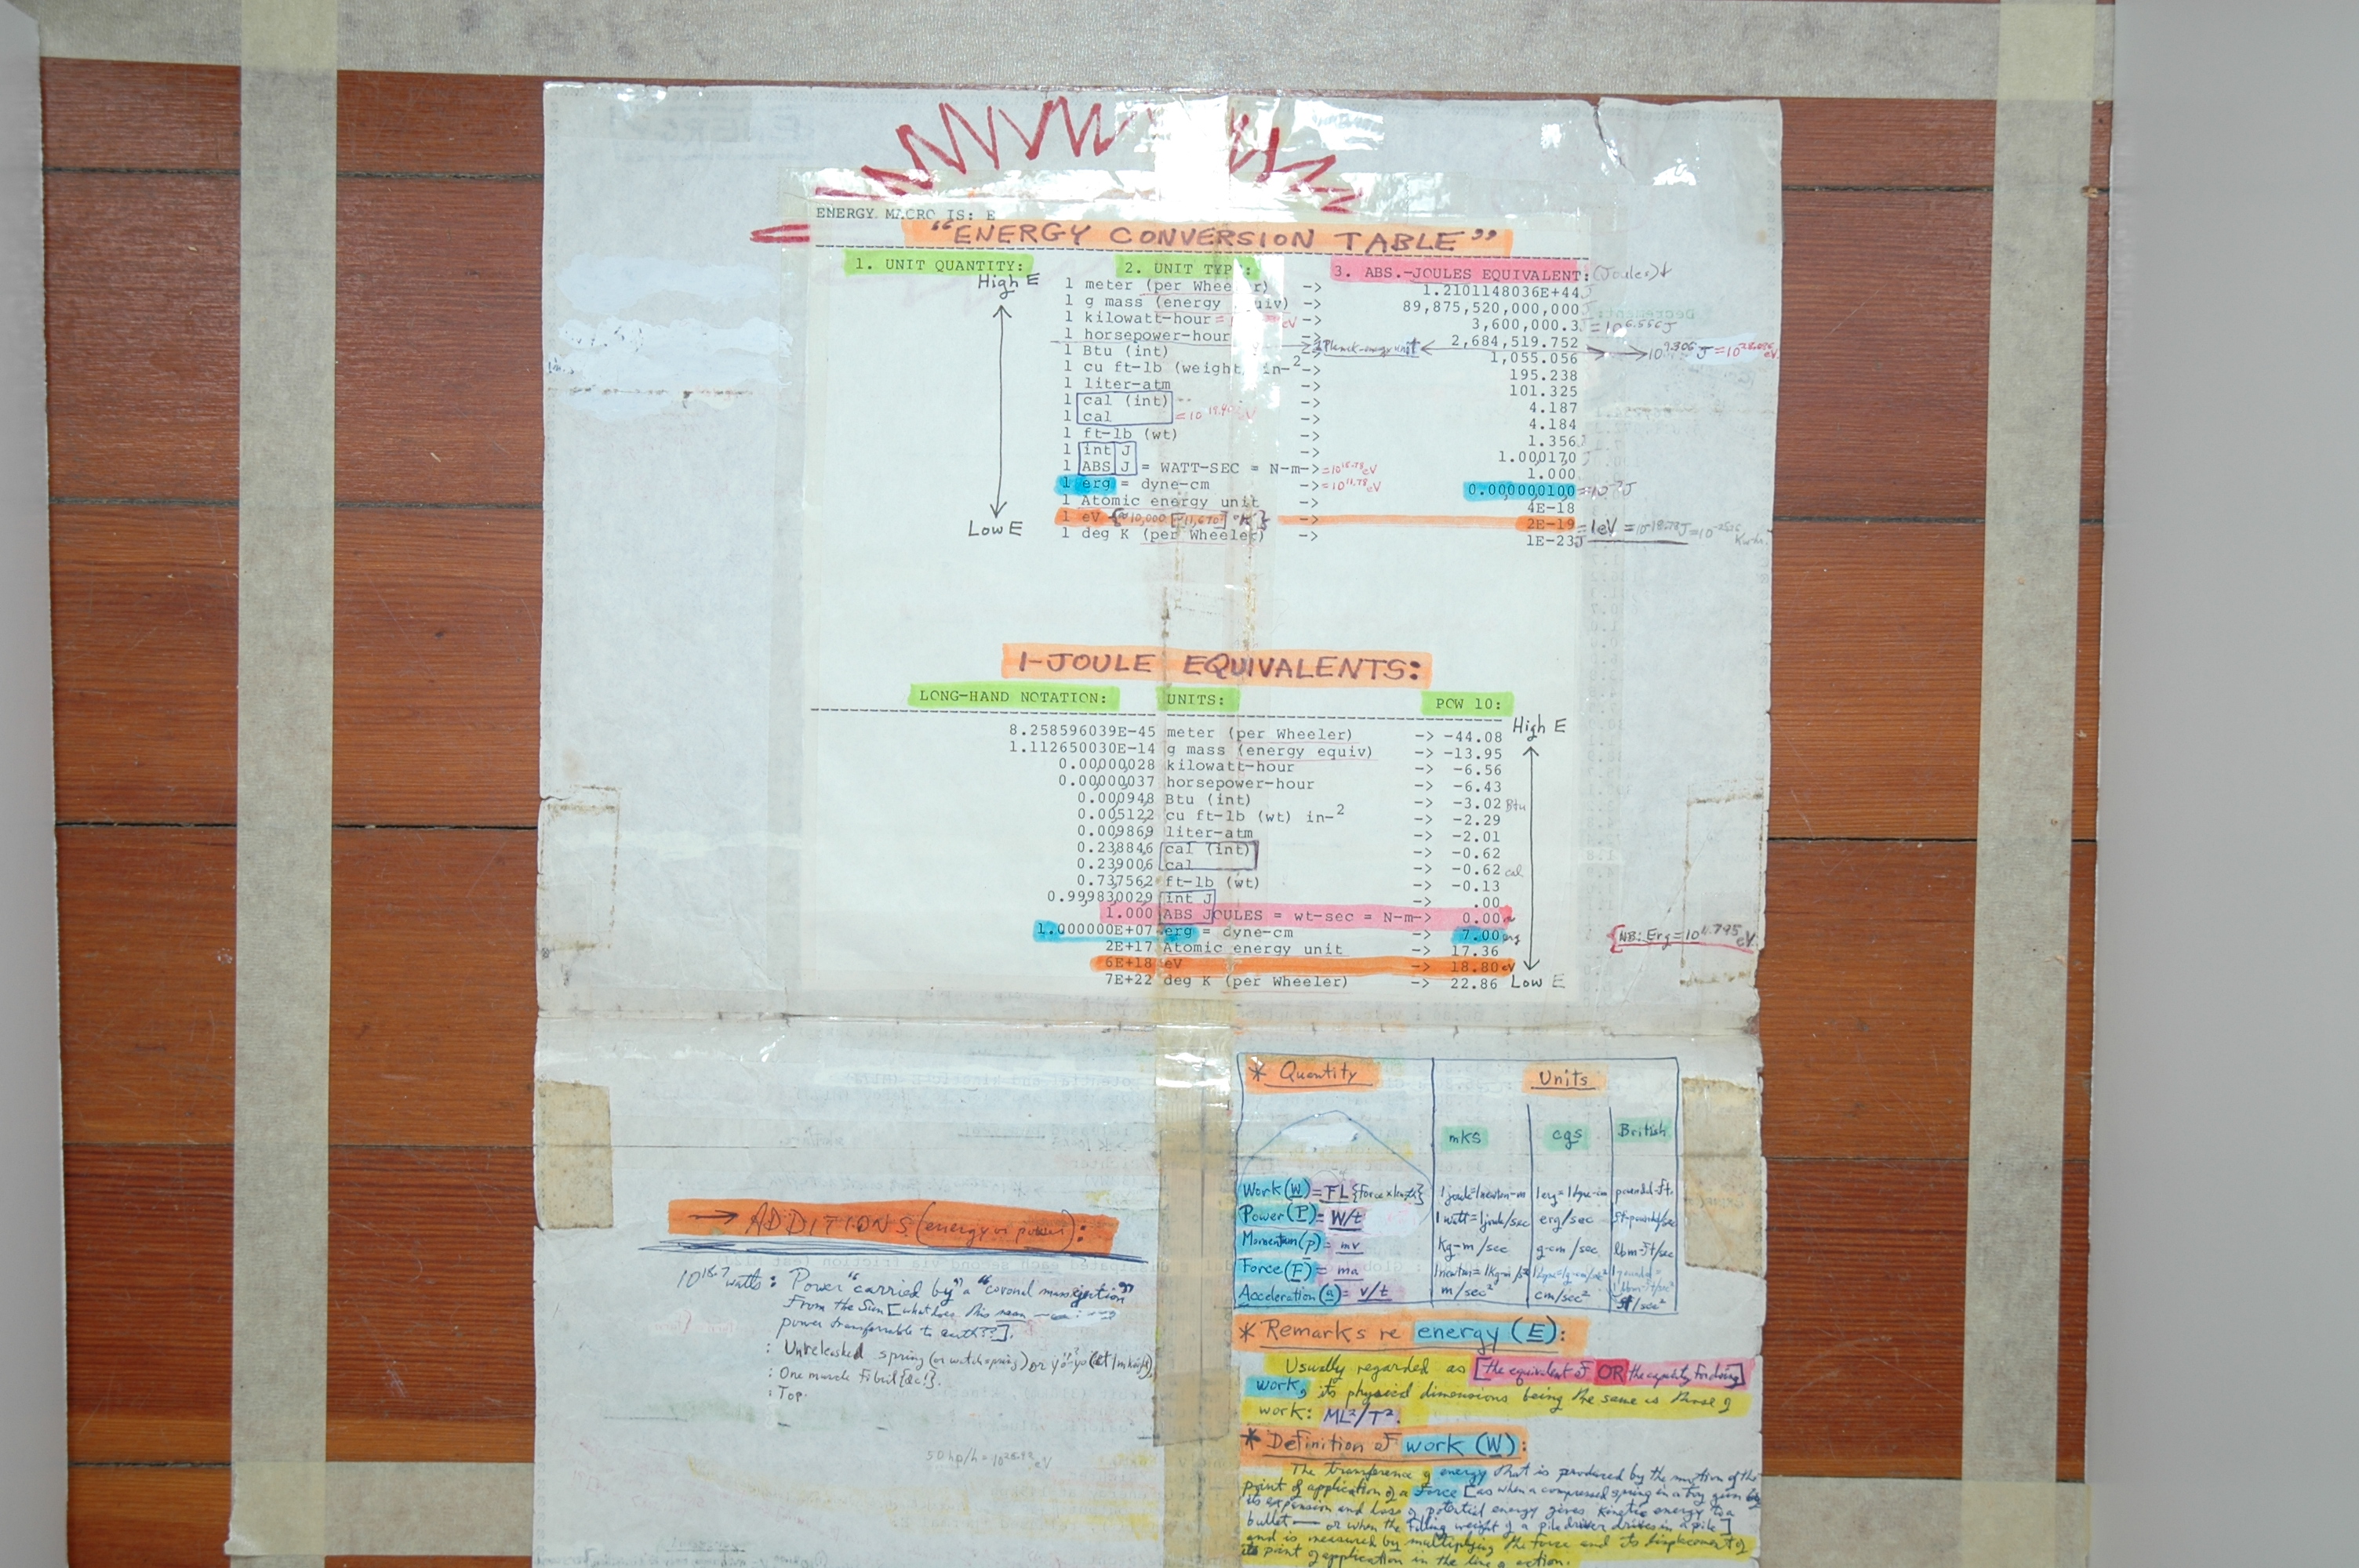 ENERGY MACRO IS: E
"ENERGY CONVERSION TABLE"
1. UNIT QUANTITY: 2. UNIT TYPE: 3. ABS.-JOULES EQUIVALENT: (Joules)↓
High E
1 meter (per Wheeler) -> 1.2101148036E+44 J
1 g mass (energy equiv) -> 89,875,520,000,000 J
1 kilowatt-hour = eV -> 3,600,000.3 J = 10^6.556 J
1 horsepower-hour -> 2,684,519.752
Planck-energy unit 10^9.306 J = 10 eV
1 Btu (int) -> 1,055.056
1 cu ft-lb (weight) in-2 -> 195.238
1 liter-atm -> 101.325
1 cal (int) -> 4.187
1 cal = eV -> 4.184
1 ft-lb (wt) -> 1.356
1 int J -> 1.000170 J
1 ABS J = WATT-SEC = N-m-> = 10^18.79 eV 1.000
1 erg = dyne-cm -> = 10^11.79 eV 0.000000100 = 10^-7 J
1 Atomic energy unit -> 4E-18
1 eV {≈10,000 [≈11,610] °K} -> 2E-19 = 1eV
1 deg K (per Wheeler) -> 1E-23 J
Low E
1-JOULE EQUIVALENTS:
LONG-HAND NOTATION: UNITS: POW 10:
High E
8.258596039E-45 meter (per Wheeler) -> -44.08
1.112650030E-14 g mass (energy equiv) -> -13.95
0.00000028 kilowatt-hour -> -6.56
0.00000037 horsepower-hour -> -6.43
0.000948 Btu (int) -> -3.02 Btu
0.005122 cu ft-lb (wt) in-2 -> -2.29
0.009869 liter-atm -> -2.01
0.238846 cal (int) -> -0.62
0.239006 cal -> -0.62 cal
0.737562 ft-lb (wt) -> -0.13
0.999830029 int J -> .00
1.000 ABS JOULES = wt-sec = N-m-> 0.00
1.000000E+07 erg = dyne-cm -> 7.00 erg
{NB: Erg = 10^11.795 eV
2E+17 Atomic energy unit -> 17.36
6E+18 eV -> 18.80 eV
7E+22 deg K (per Wheeler) -> 22.86 Low E
* Quantity Units
mks cgs British
Work (W) = FL {force x length} 1 joule=1 newton-m 1 erg=1 dyne-cm poundal-ft.
Power (P) = W/t 1 watt=1 joule/sec erg/sec ft-poundal/sec
Momentum (p) = mv Kg-m/sec g-cm/sec lbm-ft/sec
Force (F) = ma 1 newton=1Kg-m/s² 1 dyne=1g-cm/sec² 1 poundal= 1 lbm-ft/sec²
Acceleration (a) = v/t m/sec² cm/sec² ft/sec²
→ ADDITIONS (energy or power):
10^18.7 watts: Power "carried by" a "coronal mass ejection"
from the Sun [what does this mean
power transferrable to earth??].
: Unreleased spring (or watch spring) or yo-yo (at 1m height)
: One muscle fibril
: Top.
50 hp/h = 10 eV
* Remarks re energy (E):
Usually regarded as [the equivalent of OR the capacity for doing]
work, its physical dimensions being the same as those of
work: ML²/T².
* Definition of work (W):
The transference of energy that is produced by the motion of the
point of application of a force [as when a compressed spring in a toy gun by
its expansion and loss of potential energy gives kinetic energy to a
bullet — or when the falling weight of a pile driver drives in a pile]
and is measured by multiplying the force and its displacement of
its point of application in the line of action.